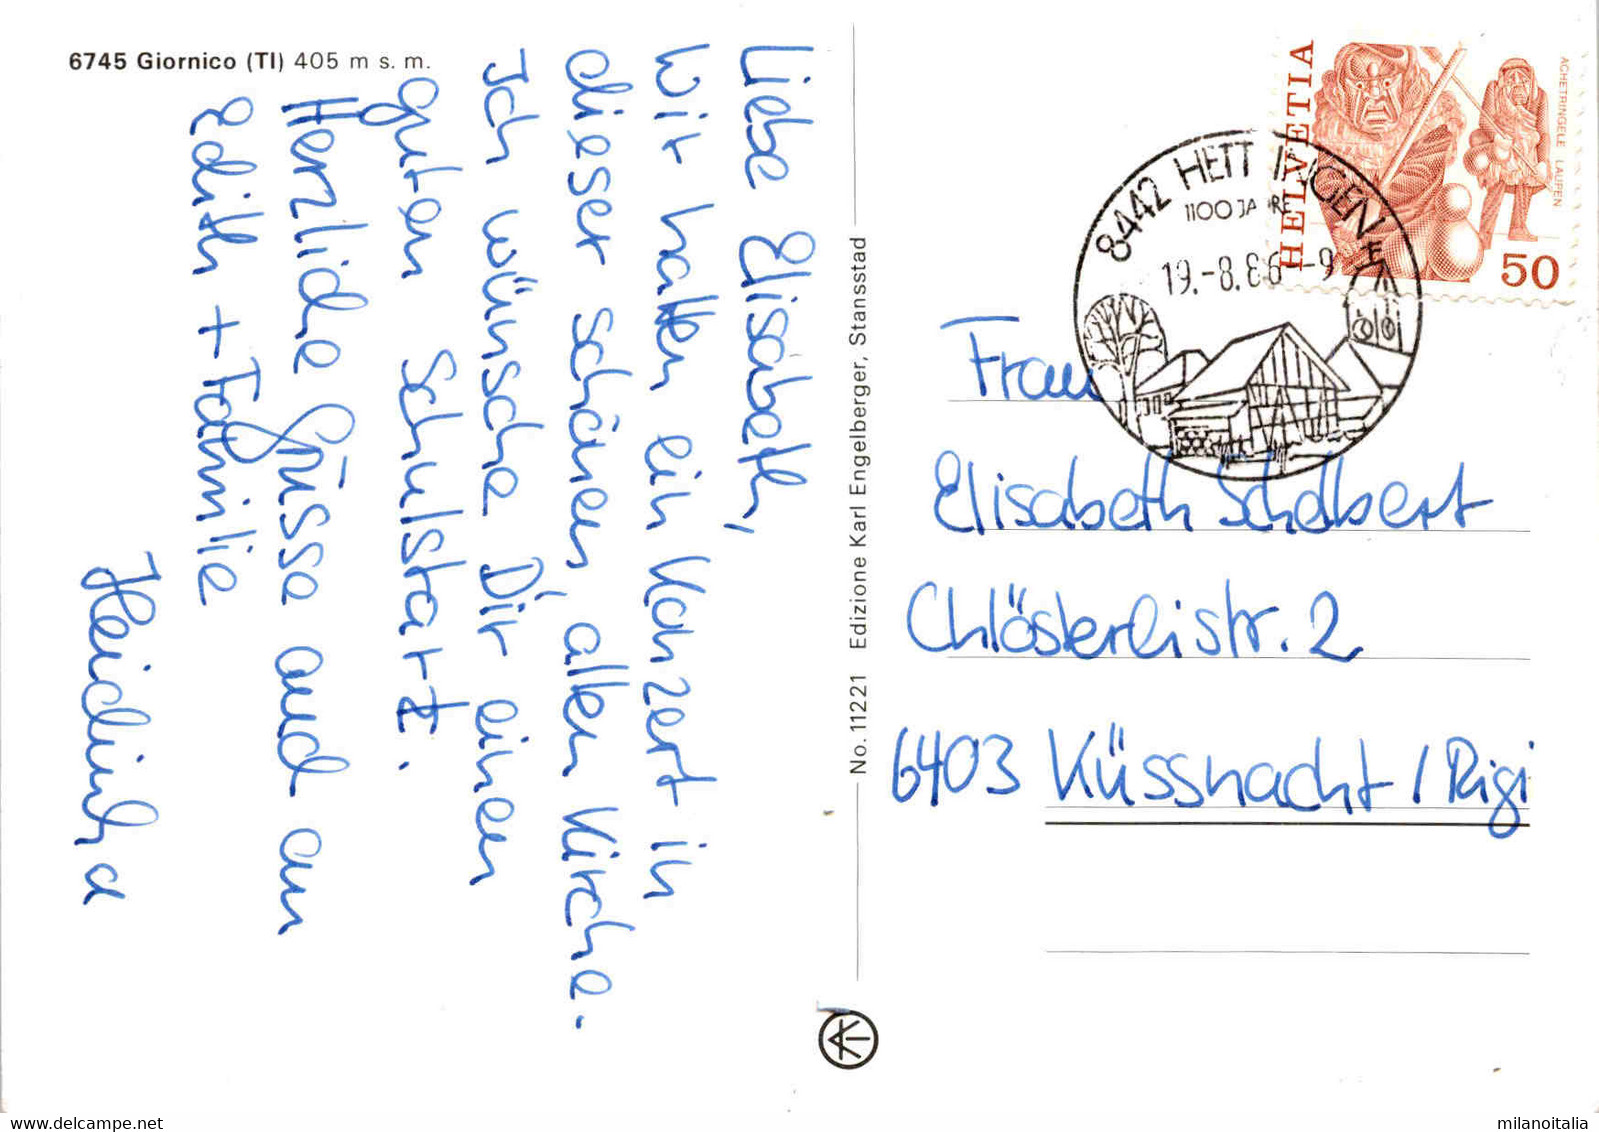 6745 Giornico (TI) 405 m s. m.
Liebe Elisabeth,
Wir hatten ein Konzert in
dieser schönen, alten Kirche.
Ich wünsche Dir einen
guten Schulstart.
Herzliche Grüsse auch an
Edith + Familie
Heidi
No. 11221 Edizione Karl Engelberger, Stansstad
HELVETIA
ACHETRINGELE LAUFEN
50
8442 HETTLINGEN
1100 JAHRE
19.-8.86--9
Frau
Elisabeth Schelbert
Chlösterlistr. 2
6403 Küssnacht / Rigi
milanoitalia